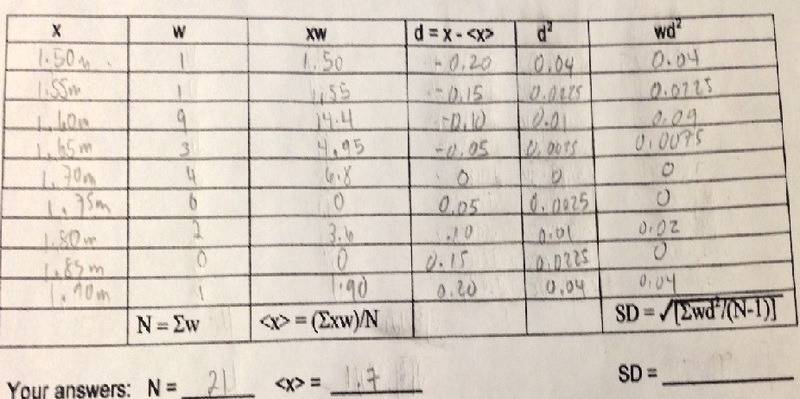 x w xw d = x - <x> d² wd²
1.50m 1 1.50 -0.20 0.04 0.04
1.55m 1 1.55 -0.15 0.0225 0.0225
1.60m 9 14.4 -0.10 0.01 0.09
1.65m 3 4.95 -0.05 0.0025 0.0075
1.70m 4 6.8 0 0 0
1.75m 0 0 0.05 0.0025 0
1.80m 2 3.6 .10 0.01 0.02
1.85m 0 0 0.15 0.0225 0
1.90m 1 1.90 0.20 0.04 0.04
N = Σw <x> = (Σxw)/N SD = √[Σwd²/(N-1)]
Your answers: N = 21 <x> = 1.7 SD =